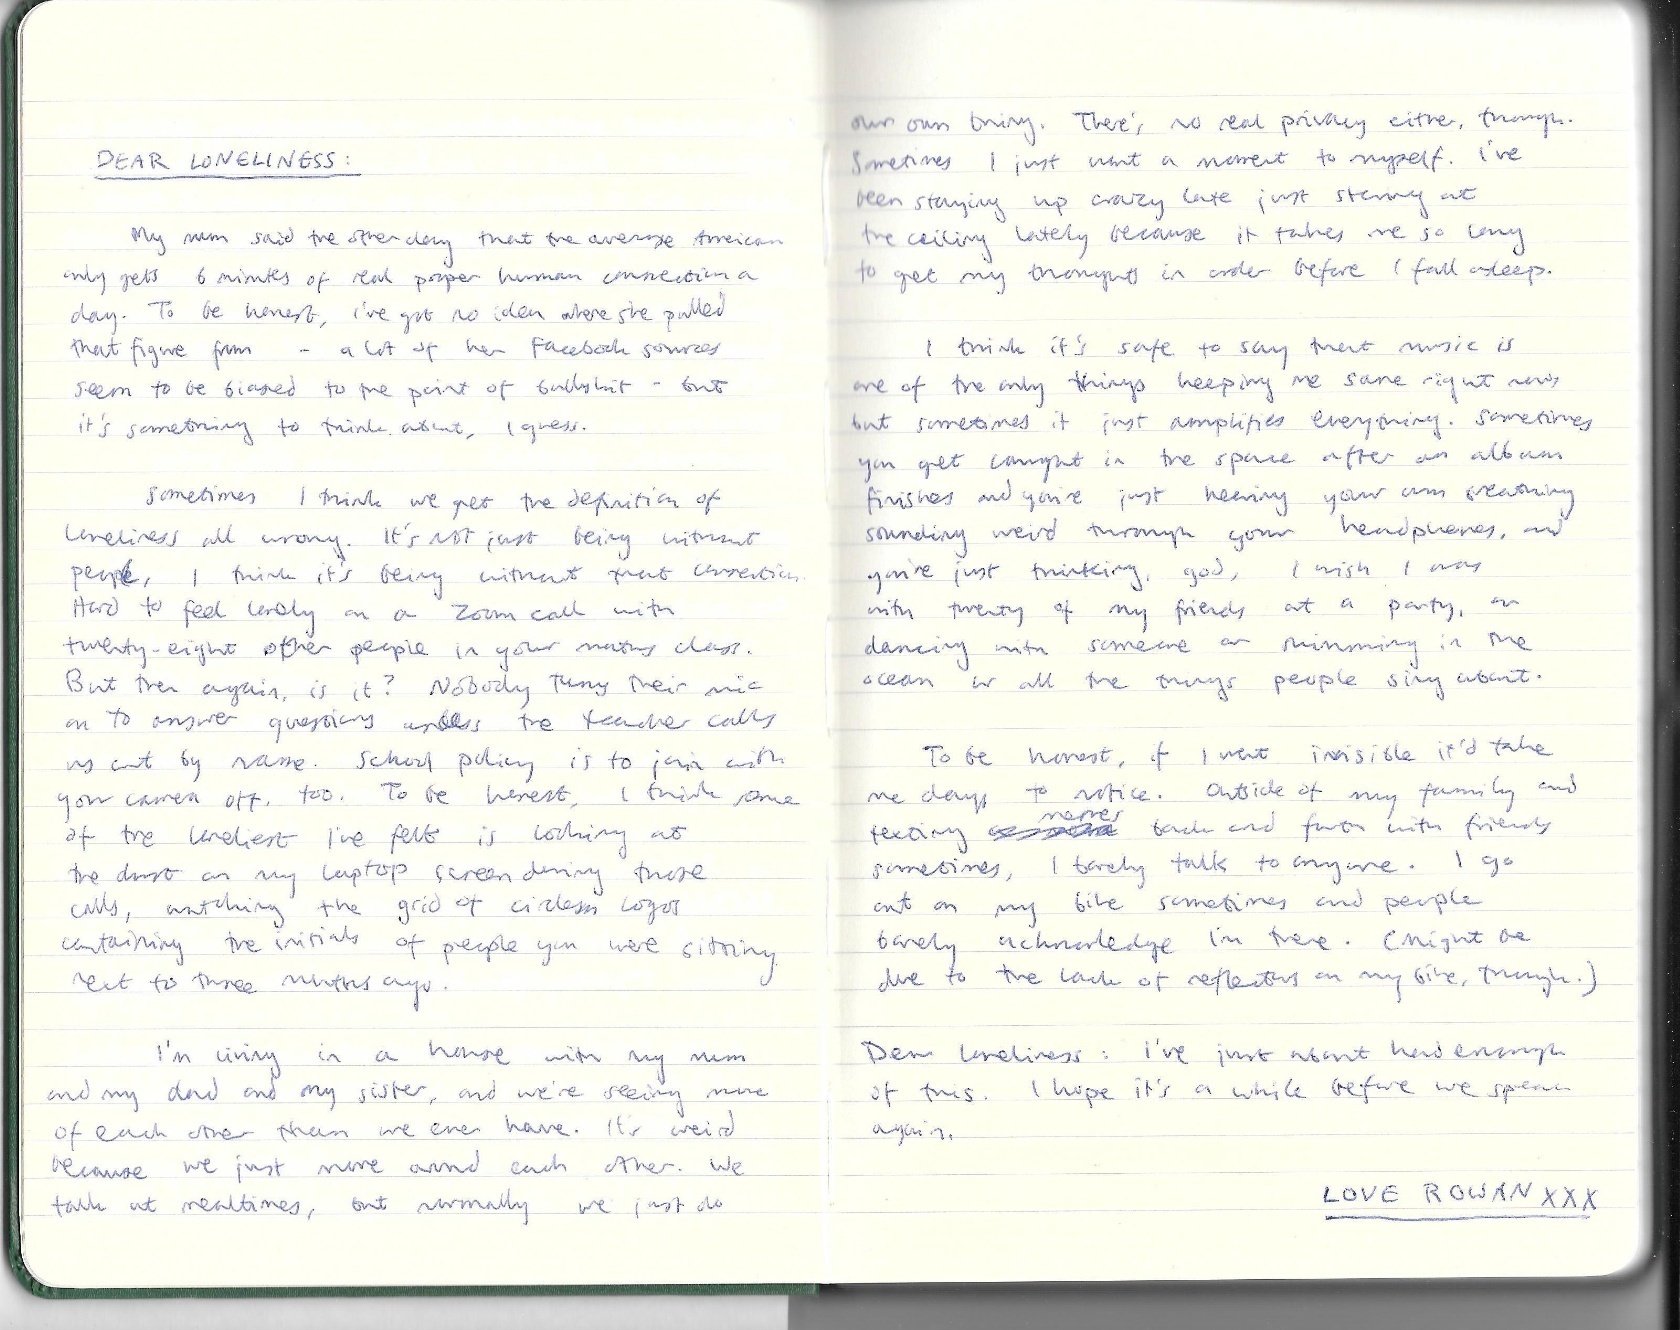 DEAR LONELINESS:
My mum said the other day that the average American
only gets 6 minutes of real proper human connection a
day. To be honest, i've got no idea where she pulled
that figure from - a lot of her Facebook sources
seem to be biased to the point of bullshit - but
it's something to think about, I guess.
Sometimes I think we get the definition of
loneliness all wrong. It's not just being without
people, I think it's being without that connection.
Hard to feel lonely on a Zoom call with
twenty-eight other people in your maths class.
But then again, is it? Nobody turns their mic
on to answer questions unless the teacher calls
us out by name. School policy is to join with
your camera off, too. To be honest, I think some
of the loneliest I've felt is looking at
the dust on my laptop screen during those
calls, watching the grid of circles logos
containing the initials of people you were sitting
next to three months ago.
I'm living in a house with my mum
and my dad and my sister, and we're seeing more
of each other than we ever have. It's weird
because we just move around each other. We
talk at mealtimes, but normally we just do
our own thing. There's no real privacy either, though.
Sometimes I just want a moment to myself. I've
been staying up crazy late just staring at
the ceiling lately because it takes me so long
to get my thoughts in order before I fall asleep.
I think it's safe to say that music is
one of the only things keeping me sane right now
but sometimes it just amplifies everything. Sometimes
you get caught in the space after an album
finishes and you're just hearing your own breathing
sounding weird through your headphones, and
you're just thinking, god, I wish I was
with twenty of my friends at a party, or
dancing with someone or swimming in the
ocean or all the things people sing about.
To be honest, if I went invisible it'd take
me days to notice. Outside of my family and
texting memes back and forth with friends
sometimes, I barely talk to anyone. I go
out on my bike sometimes and people
barely acknowledge I'm there. (Might be
due to the lack of reflectors on my bike, though.)
Dear loneliness: I've just about had enough
of this. I hope it's a while before we speak
again.
LOVE ROWAN XXX